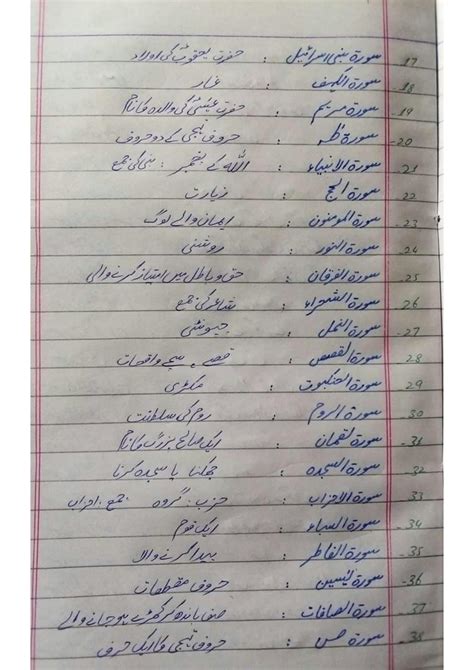 17. سورة بنی اسرائیل : حضرت یعقوبؑ کی اولاد
18. سورة الکہف : غار
19. سورة مریم : حضرت عیسیٰؑ کی والدہ کا نام
20. سورة طٰہٰ : حروف تہجی کے دو حروف
21. سورة الانبیاء : اللہ کے پیغمبر : نبی کی جمع
22. سورة الحج : زیارت
23. سورة المومنون : ایمان والے لوگ
24. سورة النور : روشنی
25. سورة الفرقان : حق و باطل میں امتیاز کرنے والی
26. سورة الشعراء : شاعر کی جمع
27. سورة النمل : چیونٹی
28. سورة القصص : قصے ۔ سچے واقعات
29. سورة العنکبوت : مکڑی
30. سورة الروم : روم کی سلطنت
31. سورة لقمان : ایک صالح بزرگ کا نام
32. سورة السجدہ : جھکنا یا سجدہ کرنا
33. سورة الاحزاب : حزب : گروہ جمع : احزاب
34. سورة السباء : ایک قوم
35. سورة الفاطر : پیدا کرنے والا
36. سورة یٰسین : حروف مقطعات
37. سورة الصافات : صف باندھ کر کھڑے ہو جانے والے
38. سورة ص : حروف تہجی کا ایک حرف